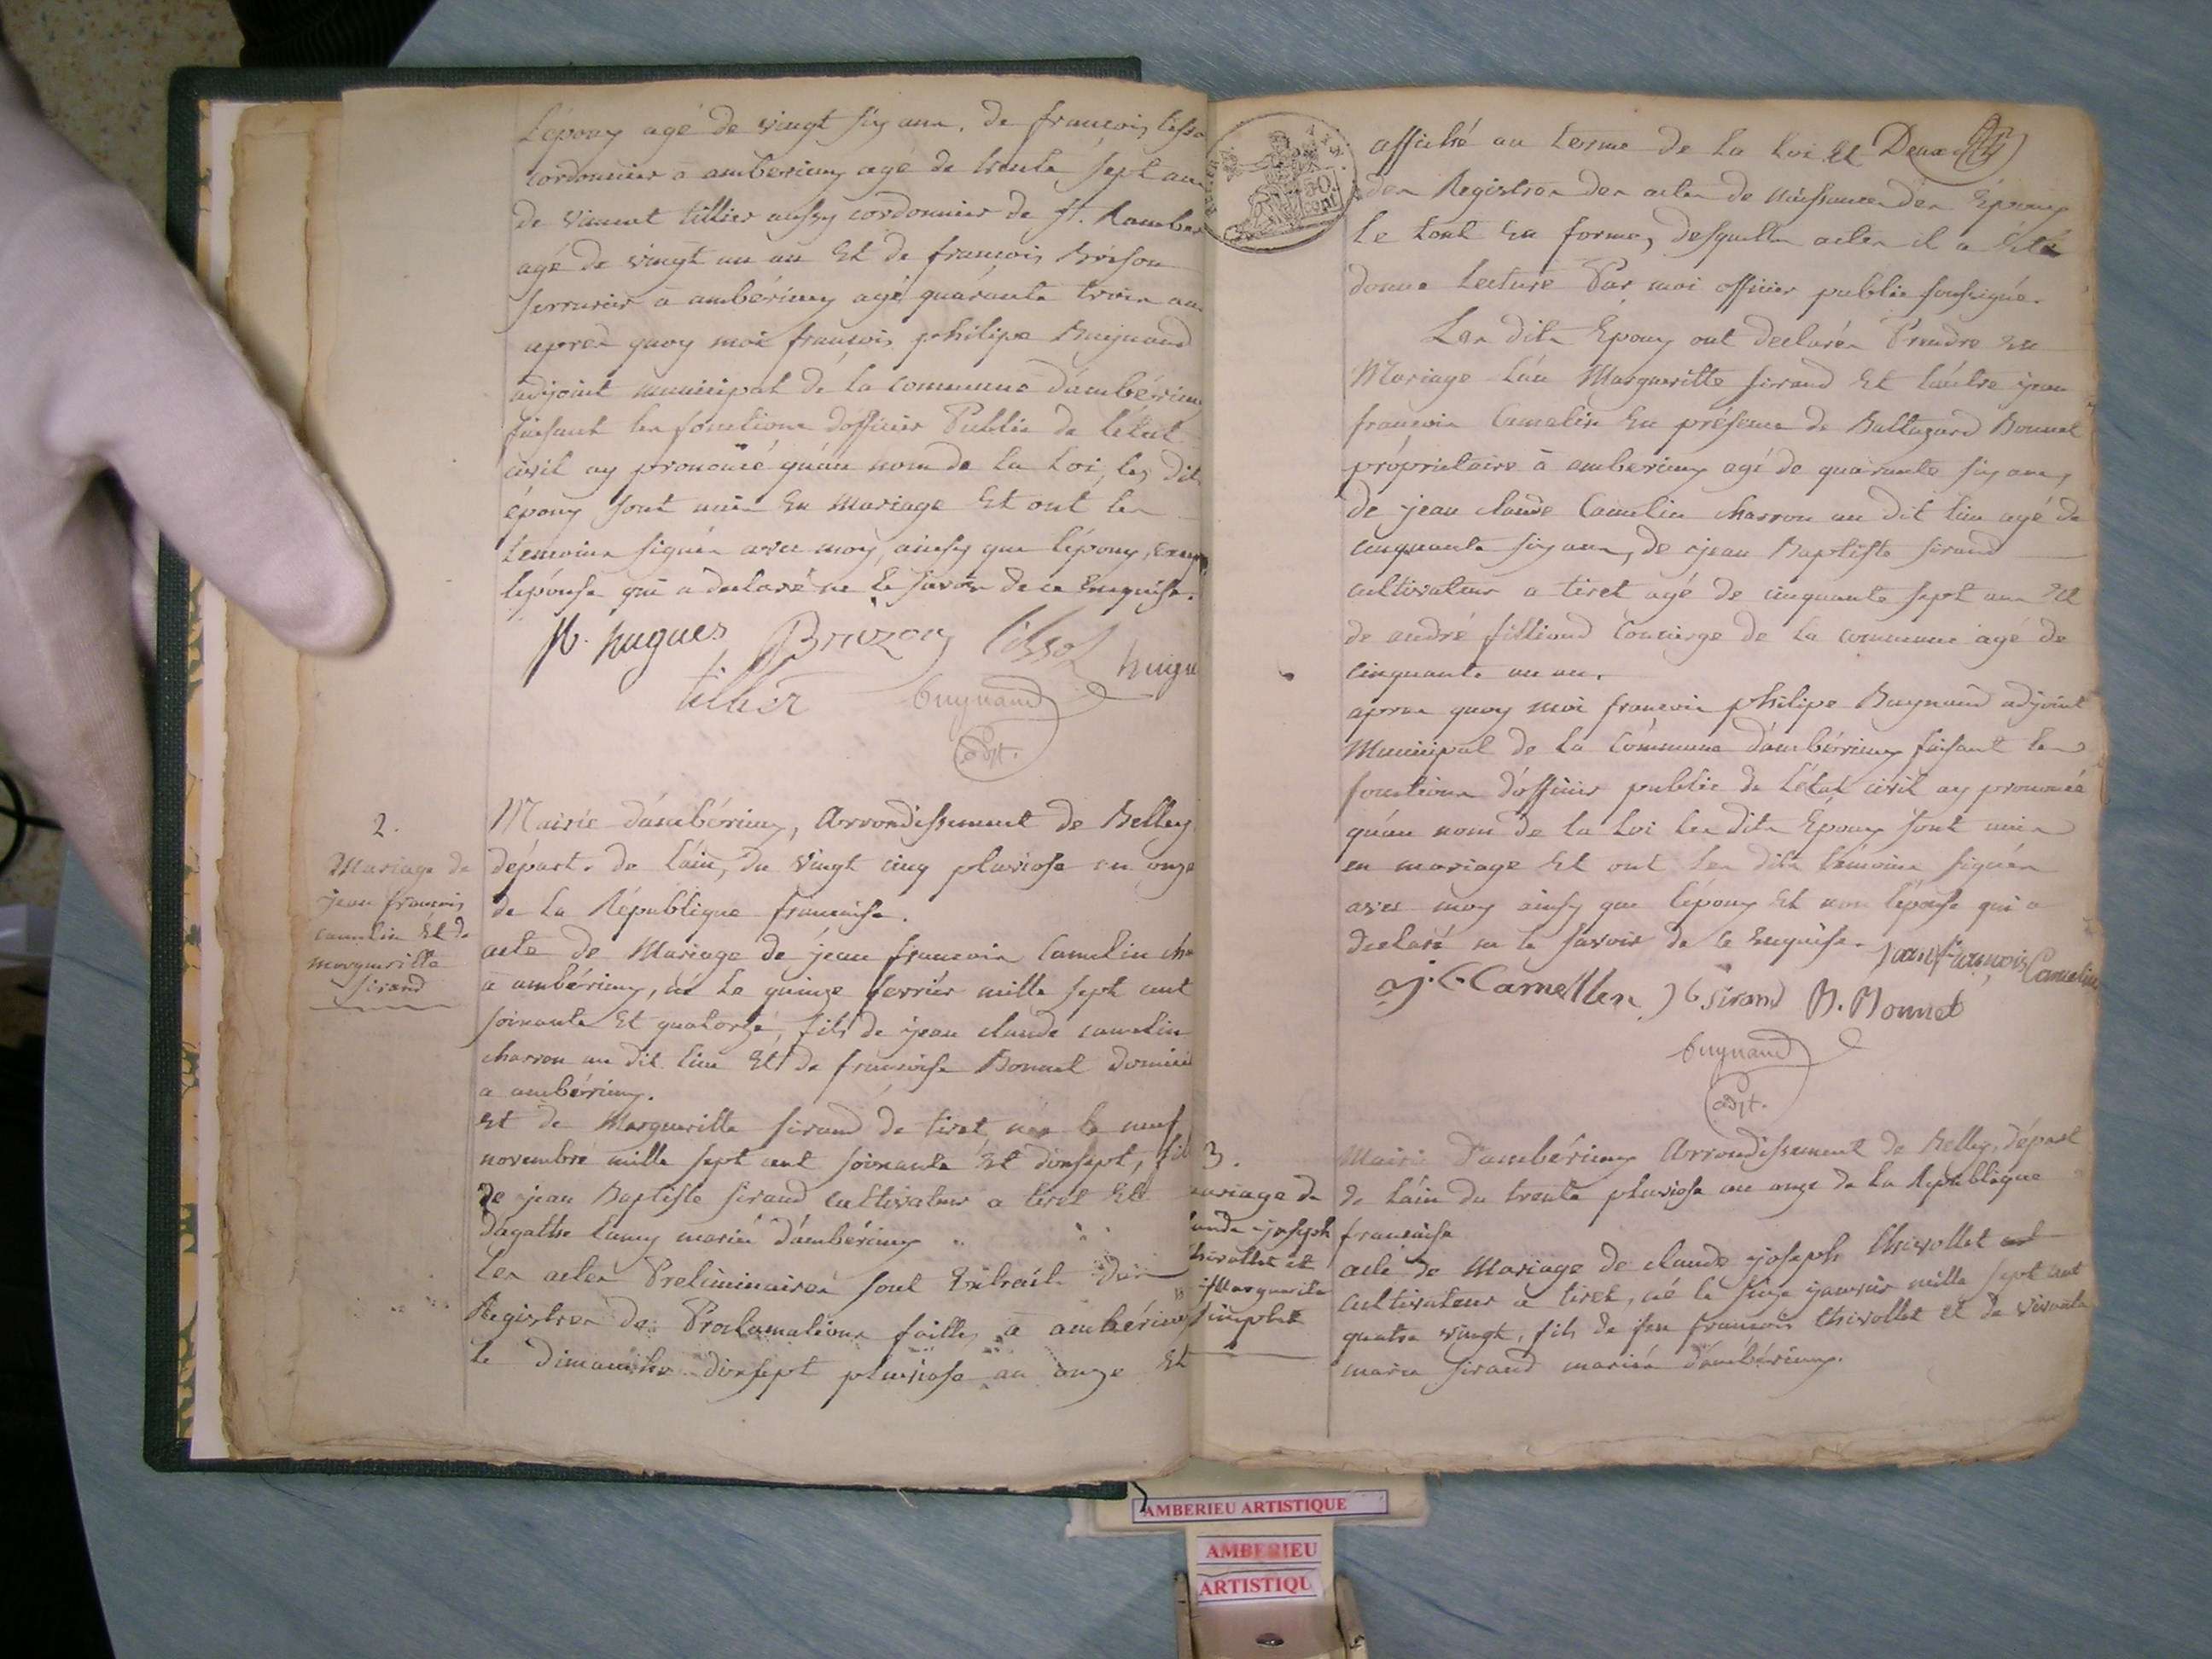 L'épouy agé de vingt six ans, de françois tisso
cordonnier a amberieuy agé de trente sept ans
de vincent tillier aussy cordonnier de St. Ramber
agé de vingt un an Et de françois Brison
serrurier a ambérieuy agé quarante trois ans
après quoy moi françois philipe Buynand
adjoint municipal de la commune d'ambérieu
faisant les fonctions d'officier Public de l'état
civil ay prononcé qu'au nom de la Loi, les dit
épouy sont unis En Mariage Et ont les
temoins signés avec moy, ainsy que l'épouy, excep
l'épouse qui a declaré ne le savoir de ce Enquise.
hugues Brizon tissot
tillier Buynand
adjt.
2.
Mariage de
jean françois
camelin Et de
margueritte
sirand
Mairie d'ambérieuy, Arrondissement de Belley
départ. de l'ain, du vingt cinq pluviose an onze
de La République francaise.
acte de Mariage de jean francois Camelin cha
a ambérieuy, né le quinze fevrier mille sept cent
soixante Et quatorze, fils de jean claude camelin
charron au dit lieu Et de francoise Bonnet domici
a ambérieuy.
Et de Margueritte sirand de tiret née le neuf
novembre mille sept cent soixante Et dixsept, fil
de jean Baptiste sirand cultivateur a tiret Et
d'agathe lamy mariés d'ambérieuy
Les actes Preliminaires sont Extraits des
Registres de Proclamations faittes a ambérieu
le dimanche dixsept pluviose an onze Et
50
cent
affiché au terme de la Loi Et Deux
des Registres des actes de Naissances des Épouy
le tout En forme, desquelles actes il a Été
donné lecture Par moi officier public soussigné.
Les dits Epouy ont declarés Prendre en
Mariage l'un Margueritte sirand Et l'autre jean
francois Camelin En présence de Baltazard Bonnet
propriétaire a amberieuy agé de quarante six ans,
de jean claude Camelin charron au dit lieu agé de
cinquante six ans, de jean Baptiste sirand
cultivateur a tiret agé de cinquante sept ans Et
de andré filliard Concierge de la commune agé de
cinquante un an.
apres quoy moi francois philipe Buynand adjoint
Municipal de la Commune d'ambérieuy faisant les
fonctions d'officier public de l'état civil ay prononcé
qu'au nom de la Loi les dits Épouy sont unis
en mariage Et ont les dits témoins signés
avec moy ainsy que l'épouy Et non l'épouse qui a
declaré ne le savoir de ce Enquise. jean françois Camelin
j. C Camellen j b sirand B. Bonnet
Buynand
adjt.
3.
ariage de
laude joseph
thivollet et
Marguerite
simplet
Mairie d'ambérieuy Arrondissement de Belley, départ
de l'ain du trente pluviose an onze de la République
francaise
acte de Mariage de claude joseph thivollet
cultivateur a tiret, né le seize janvier mille sept cent
quatre vingt, fils de feu francois thivollet et de
marie sirand mariés d'ambérieuy.
AMBERIEU ARTISTIQUE
AMBERIEU
ARTISTIQU